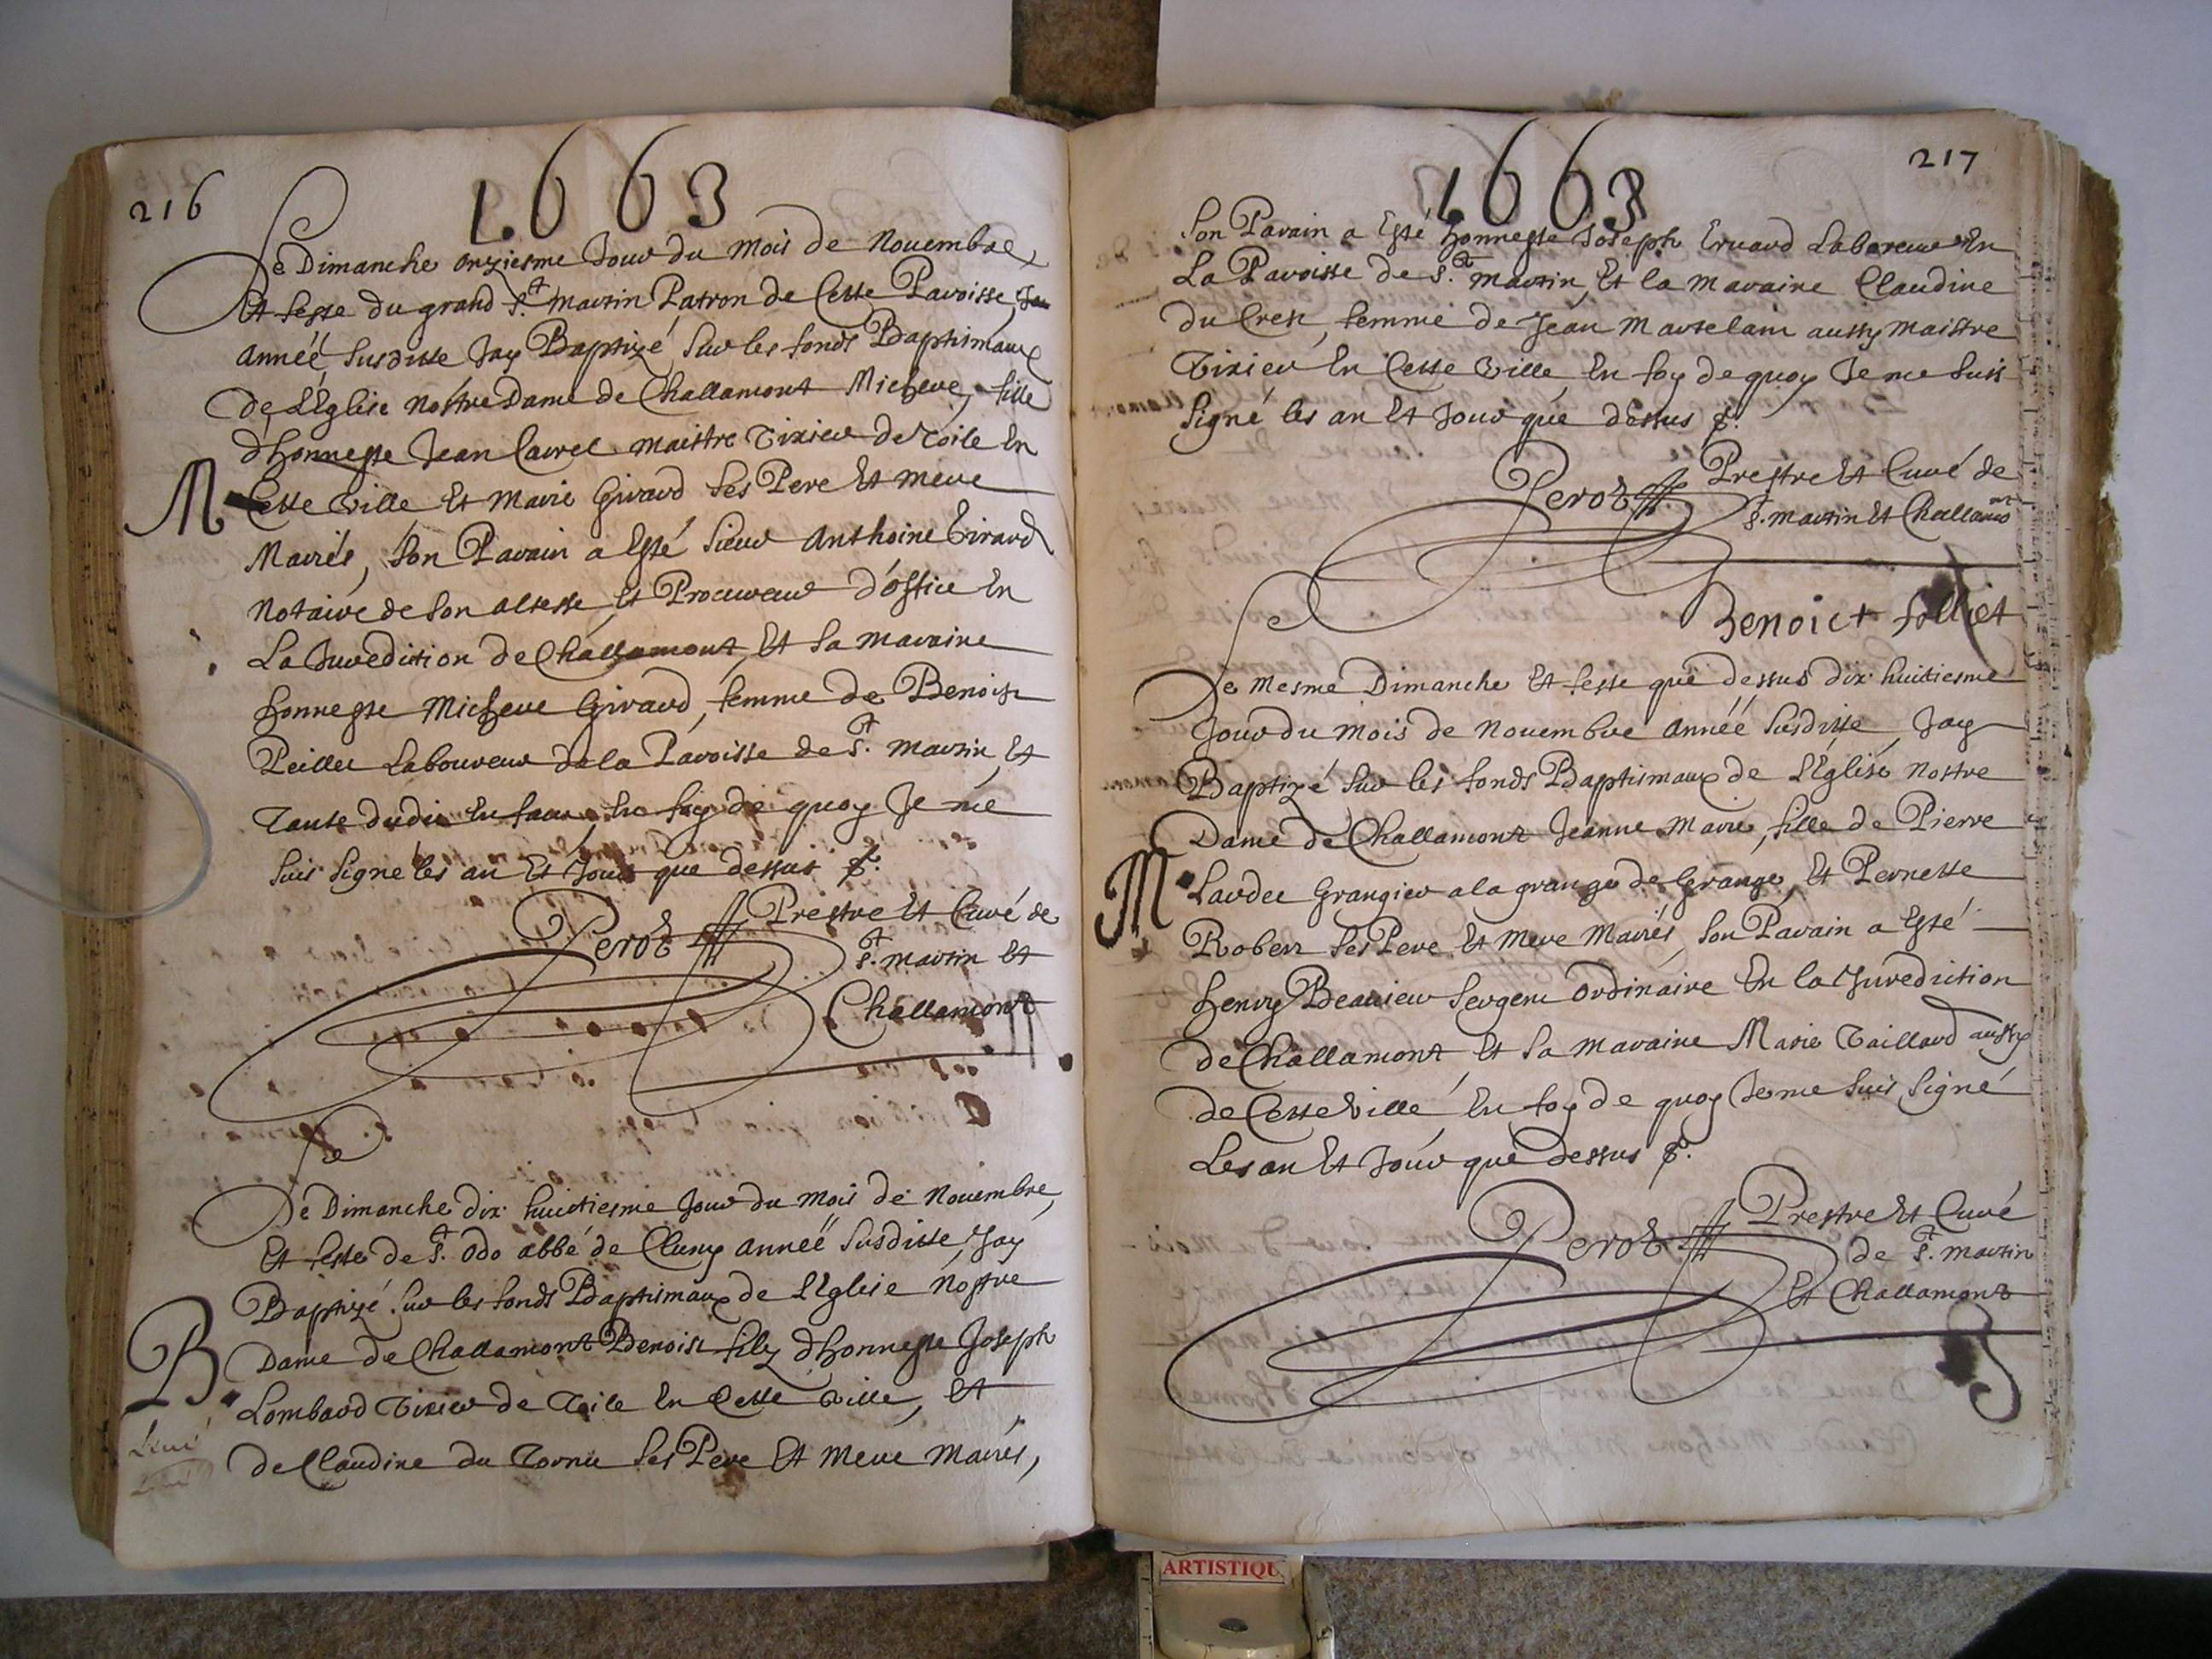 216
1663
Le Dimanche onziesme Jour du mois de Nouembre
Et feste du grand St. Martin Patron de Cette Paroisse
Année Susditte Jay Baptizé Sur les fonds Baptismaux
de L'Eglise Nostre Dame de Challamont Micheue, fille
d'honneste Jean Cairel maistre Tixier de toile En
M Cette Ville Et Marie Giraud Ses Pere Et mere
Mairiés, Son Parain a Esté Sieur Anthoine Girard
Notaire de Son altesse, Et Procureur d'office En
La Juredition de Challamont, Et Sa maraine
honneste Micheue Giraud, femme de Benoist
Peillee Laboureur de la Paroisse de St. Martin, Et
Tante dudit Enfant, En foy de quoy Je me
Suis Signé les an Et Jour que dessus
Peroz Prestre Et Curé de
St. Martin Et
Challamont
Le
Le Dimanche dix huictiesme Jour du mois de Nouembre,
Et feste de St. Odo abbé de Cluny année Susditte, Jay
Baptizé Sur les fonds Baptismaux de L'Eglise Nostre
B Dame de Challamont Benoist filz d'honneste Joseph
Lombard Tixier de Toile En Cette Ville, Et
de Claudine du Tornu Ses Pere Et Mere Mairiés,
217
1663
Son Parain a Esté honneste Joseph Eruard Laboreur En
La Paroisse de St. Martin, Et la maraine Claudine
du Cret, femme de Jean Martelain aussy maistre
Tixier En Cette Ville, En foy de quoy Je me Suis
Signé les an Et Jour que dessus
Peroz Prestre Et Curé de
St. Martin Et Challamont
Le
Benoict folliet
Le Mesme Dimanche Et feste que dessus dix huitiesme
Jour du mois de Nouembre année Susditte, Jay
Baptizé Sur les fonds Baptismaux de L'Eglise Nostre
Dame de Challamont Jeanne Marie, fille de Pierre
M Lardee Grangier a la grange de Grange, Et Pernette
Robert Ses Pere Et Mere Mairiés, Son Parain a Esté
henry Beauieu Sergent Ordinaire En la Juredition
de Challamont, Et Sa maraine Marie Taillard aussy
de Cette Ville, En foy de quoy Je me Suis Signé
Les an Et Jour que dessus
Peroz Prestre Et Curé
de St. Martin
Et Challamont
ARTISTIQU